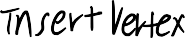 Insert Vertex